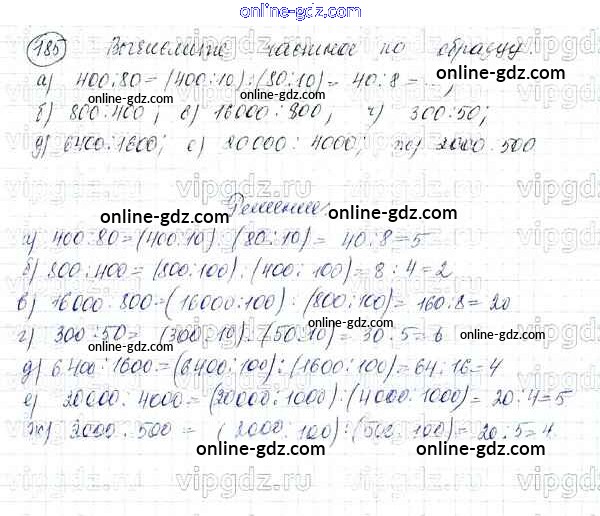 online-gdz.com
185 Вычислите частное по образцу:
а) 400:80=(400:10):(80:10)= 40:8=...;
online-gdz.com
б) 800:400; в) 16000:800; г) 300:50;
д) 6400:1600; е) 20000:4000; ж) 2000:500
Решение.
online-gdz.com
а) 400:80=(400:10):(80:10)= 40:8=5
б) 800:400=(800:100):(400:100)=8:4=2
online-gdz.com
в) 16000:800=(16000:100):(800:100)=160:8=20
г) 300:50=(300:10):(50:10)=30:5=6
online-gdz.com
д) 6400:1600=(6400:100):(1600:100)=64:16=4
е) 20000:4000=(20000:1000):(4000:1000)=20:4=5
online-gdz.com
ж) 2000:500=(2000:100):(500:100)=20:5=4
online-gdz.com
vipgdz.ru vipgdz.ru vipgdz.ru